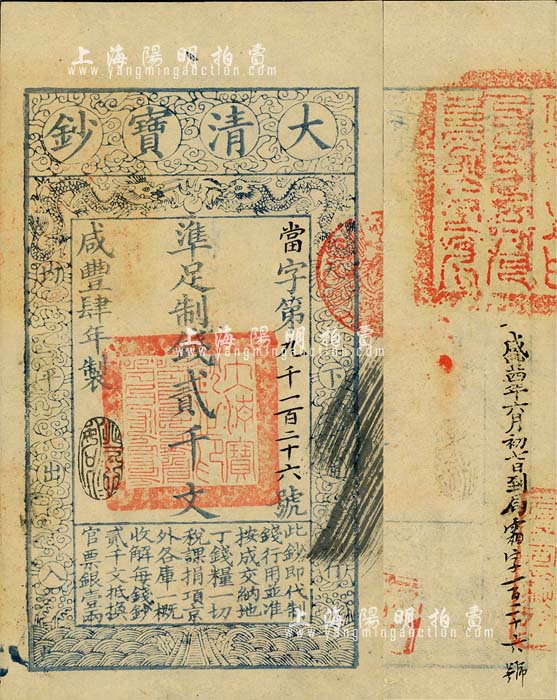 上海陽明拍賣
www.yangmingauction.com
大清寶鈔
當字第九千一百二十六號
準足制錢貳千文
咸豐肆年製
天下
均平出入
此鈔即代制
錢行用並准
按成交納地
丁錢糧一切
稅課捐項京
外各庫一概
收解每錢鈔
貳千文抵換
官票銀壹兩
上海陽明拍賣
www.yangmingauction.com
年六月初七日到局霜字一百二十六號
上海陽明拍賣
www.yangmingauction.com